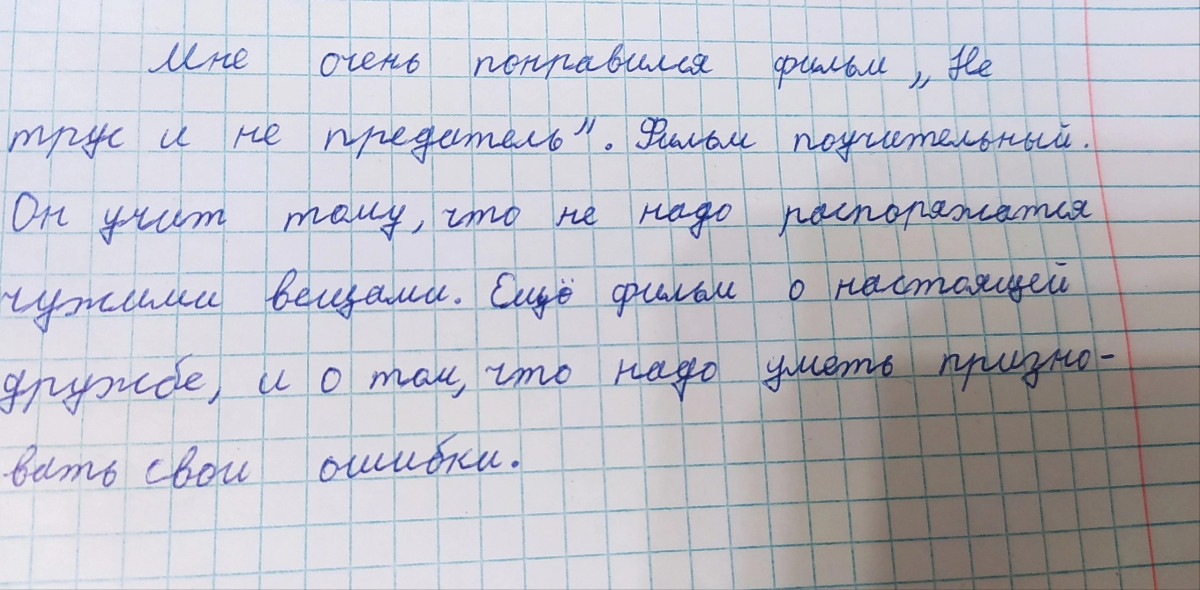 Мне очень понравился фильм „Не
трус и не предатель”. Фильм поучительный.
Он учит тому, что не надо распоряжатся
чужими вещами. Ещё фильм о настоящей
дружбе, и о том, что надо уметь призно-
вать свои ошибки.